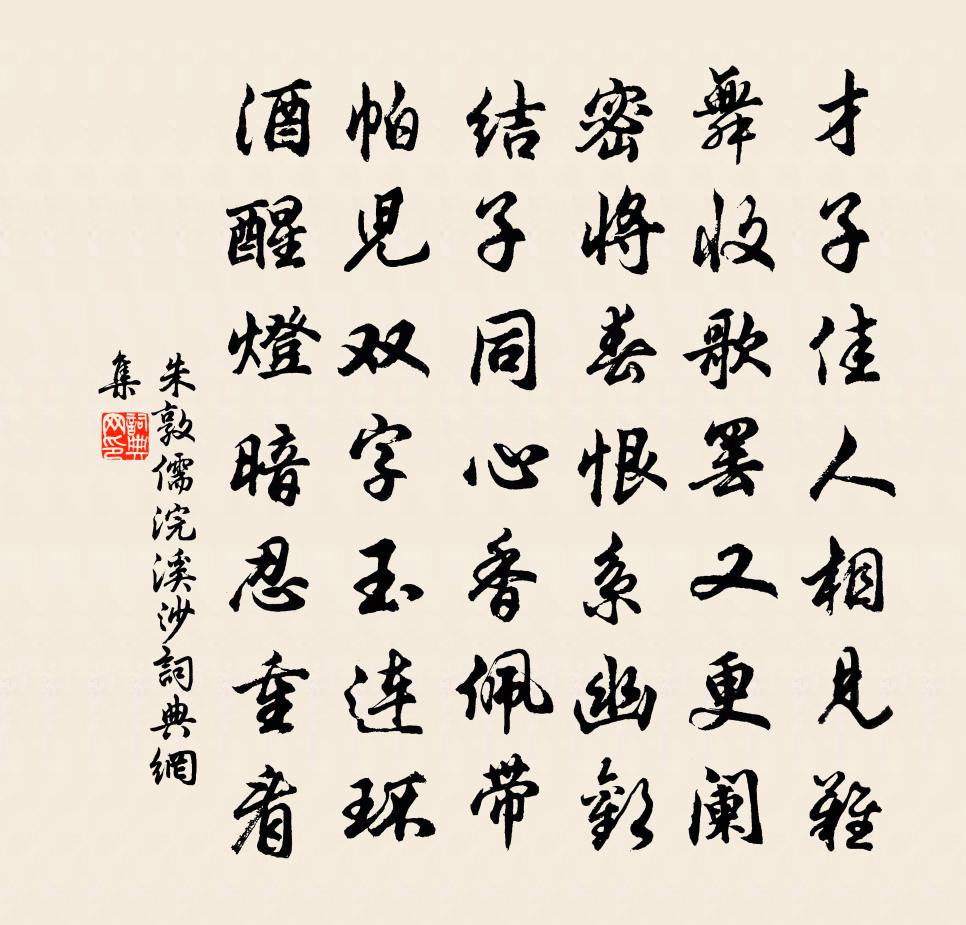 才子佳人相見難
舞收歌罢又更阑
密將春恨系幽歡
结子同心香佩带
帕児双字玉連环
酒醒燈暗忍重看
朱敦儒浣溪沙詞典網
集
詞典
网印